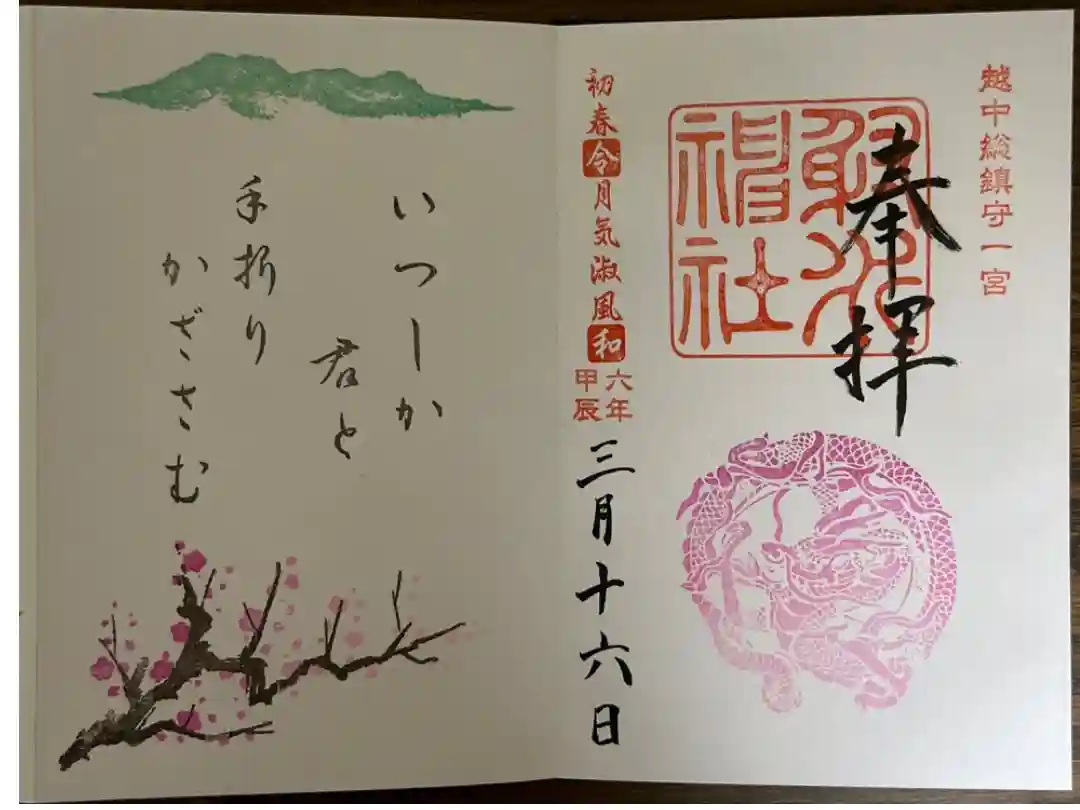 越中総鎮守一宮
奉拝
射水
神社
初春令月気淑風和
六年
甲辰
三月十六日
いつしか
君と
手折り
かざさむ